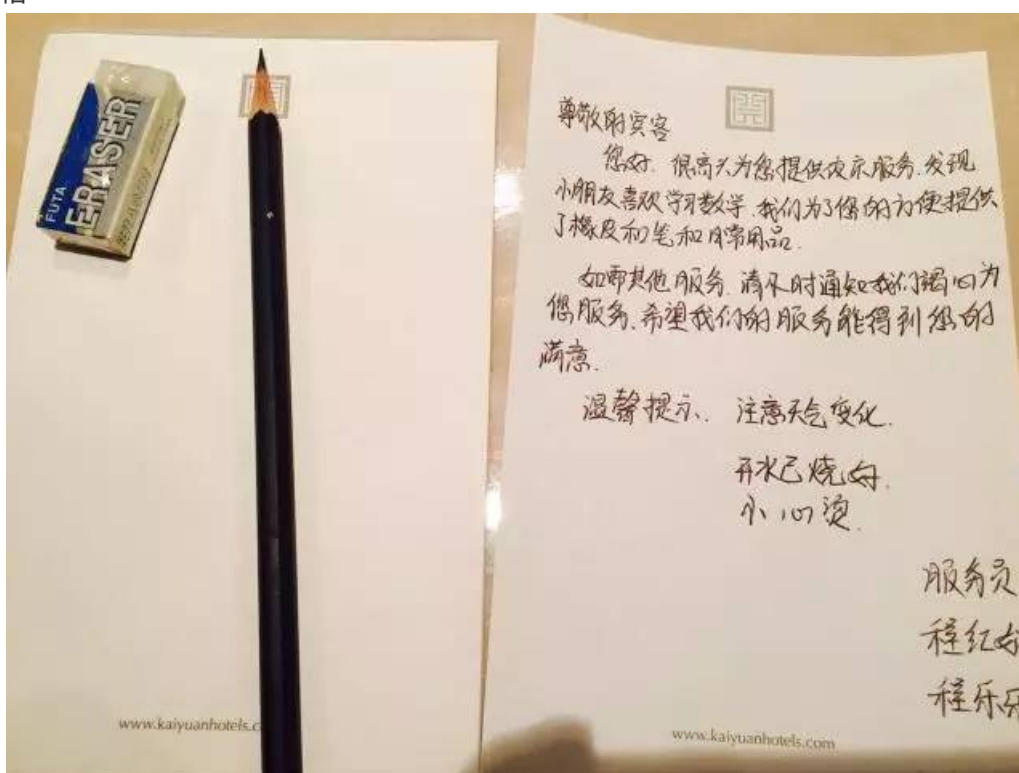 FUTA
ERASER
www.kaiyuanhotels.c
尊敬的宾客
您好. 很高兴为您提供夜床服务. 发现
小朋友喜欢学习数学. 我们为了您的方便提供
了橡皮和笔和日常用品.
如需其他服务. 请不时通知我们竭心为
您服务. 希望我们的服务能得到您的
满意.
温馨提示. 注意天气变化.
开水已烧好.
小心烫.
服务员
程红
程乐乐
www.kaiyuanhotels.com